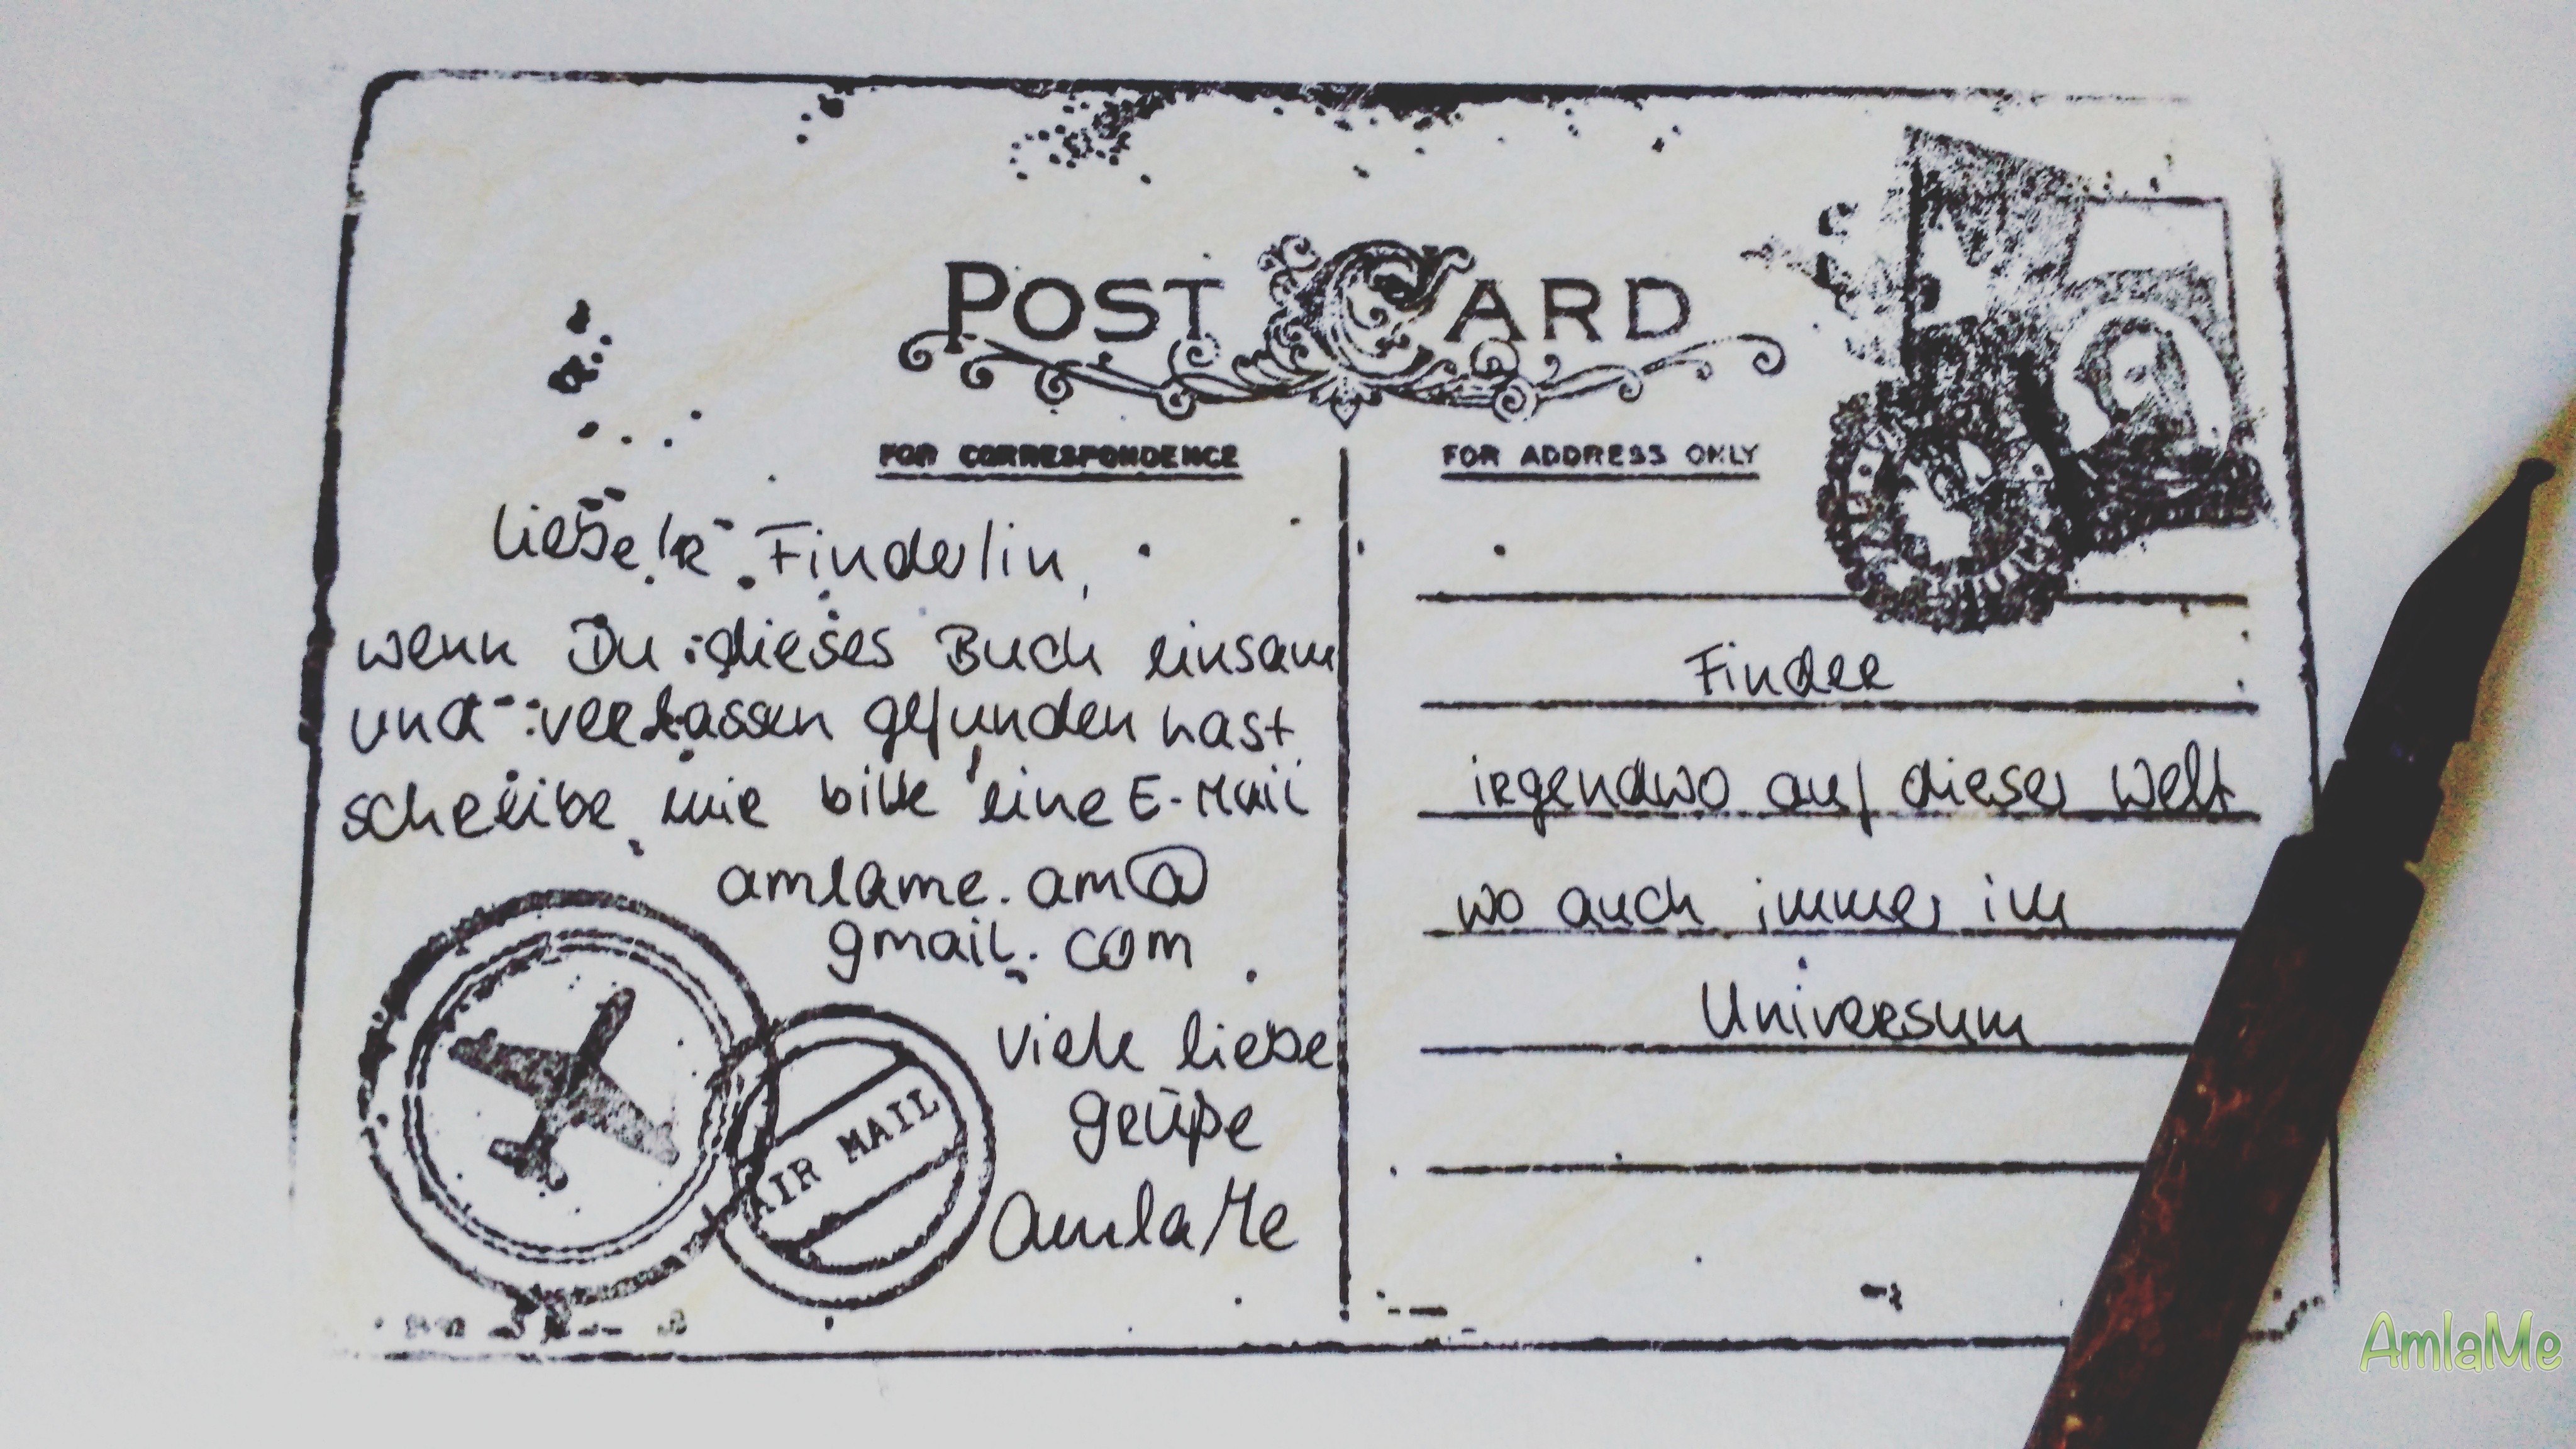 POST CARD
FOR CORRESPONDENCE
Liebe/r Finder/in,
wenn Du dieses Buch einsam
und verlassen gefunden hast
schreibe mir bitte eine E-Mail
amlame.am@
gmail.com
Viele liebe
Grüße
AmlaMe
AIR MAIL
FOR ADDRESS ONLY
Finder
irgendwo auf dieser Welt
wo auch immer im
Universum
AmlaMe